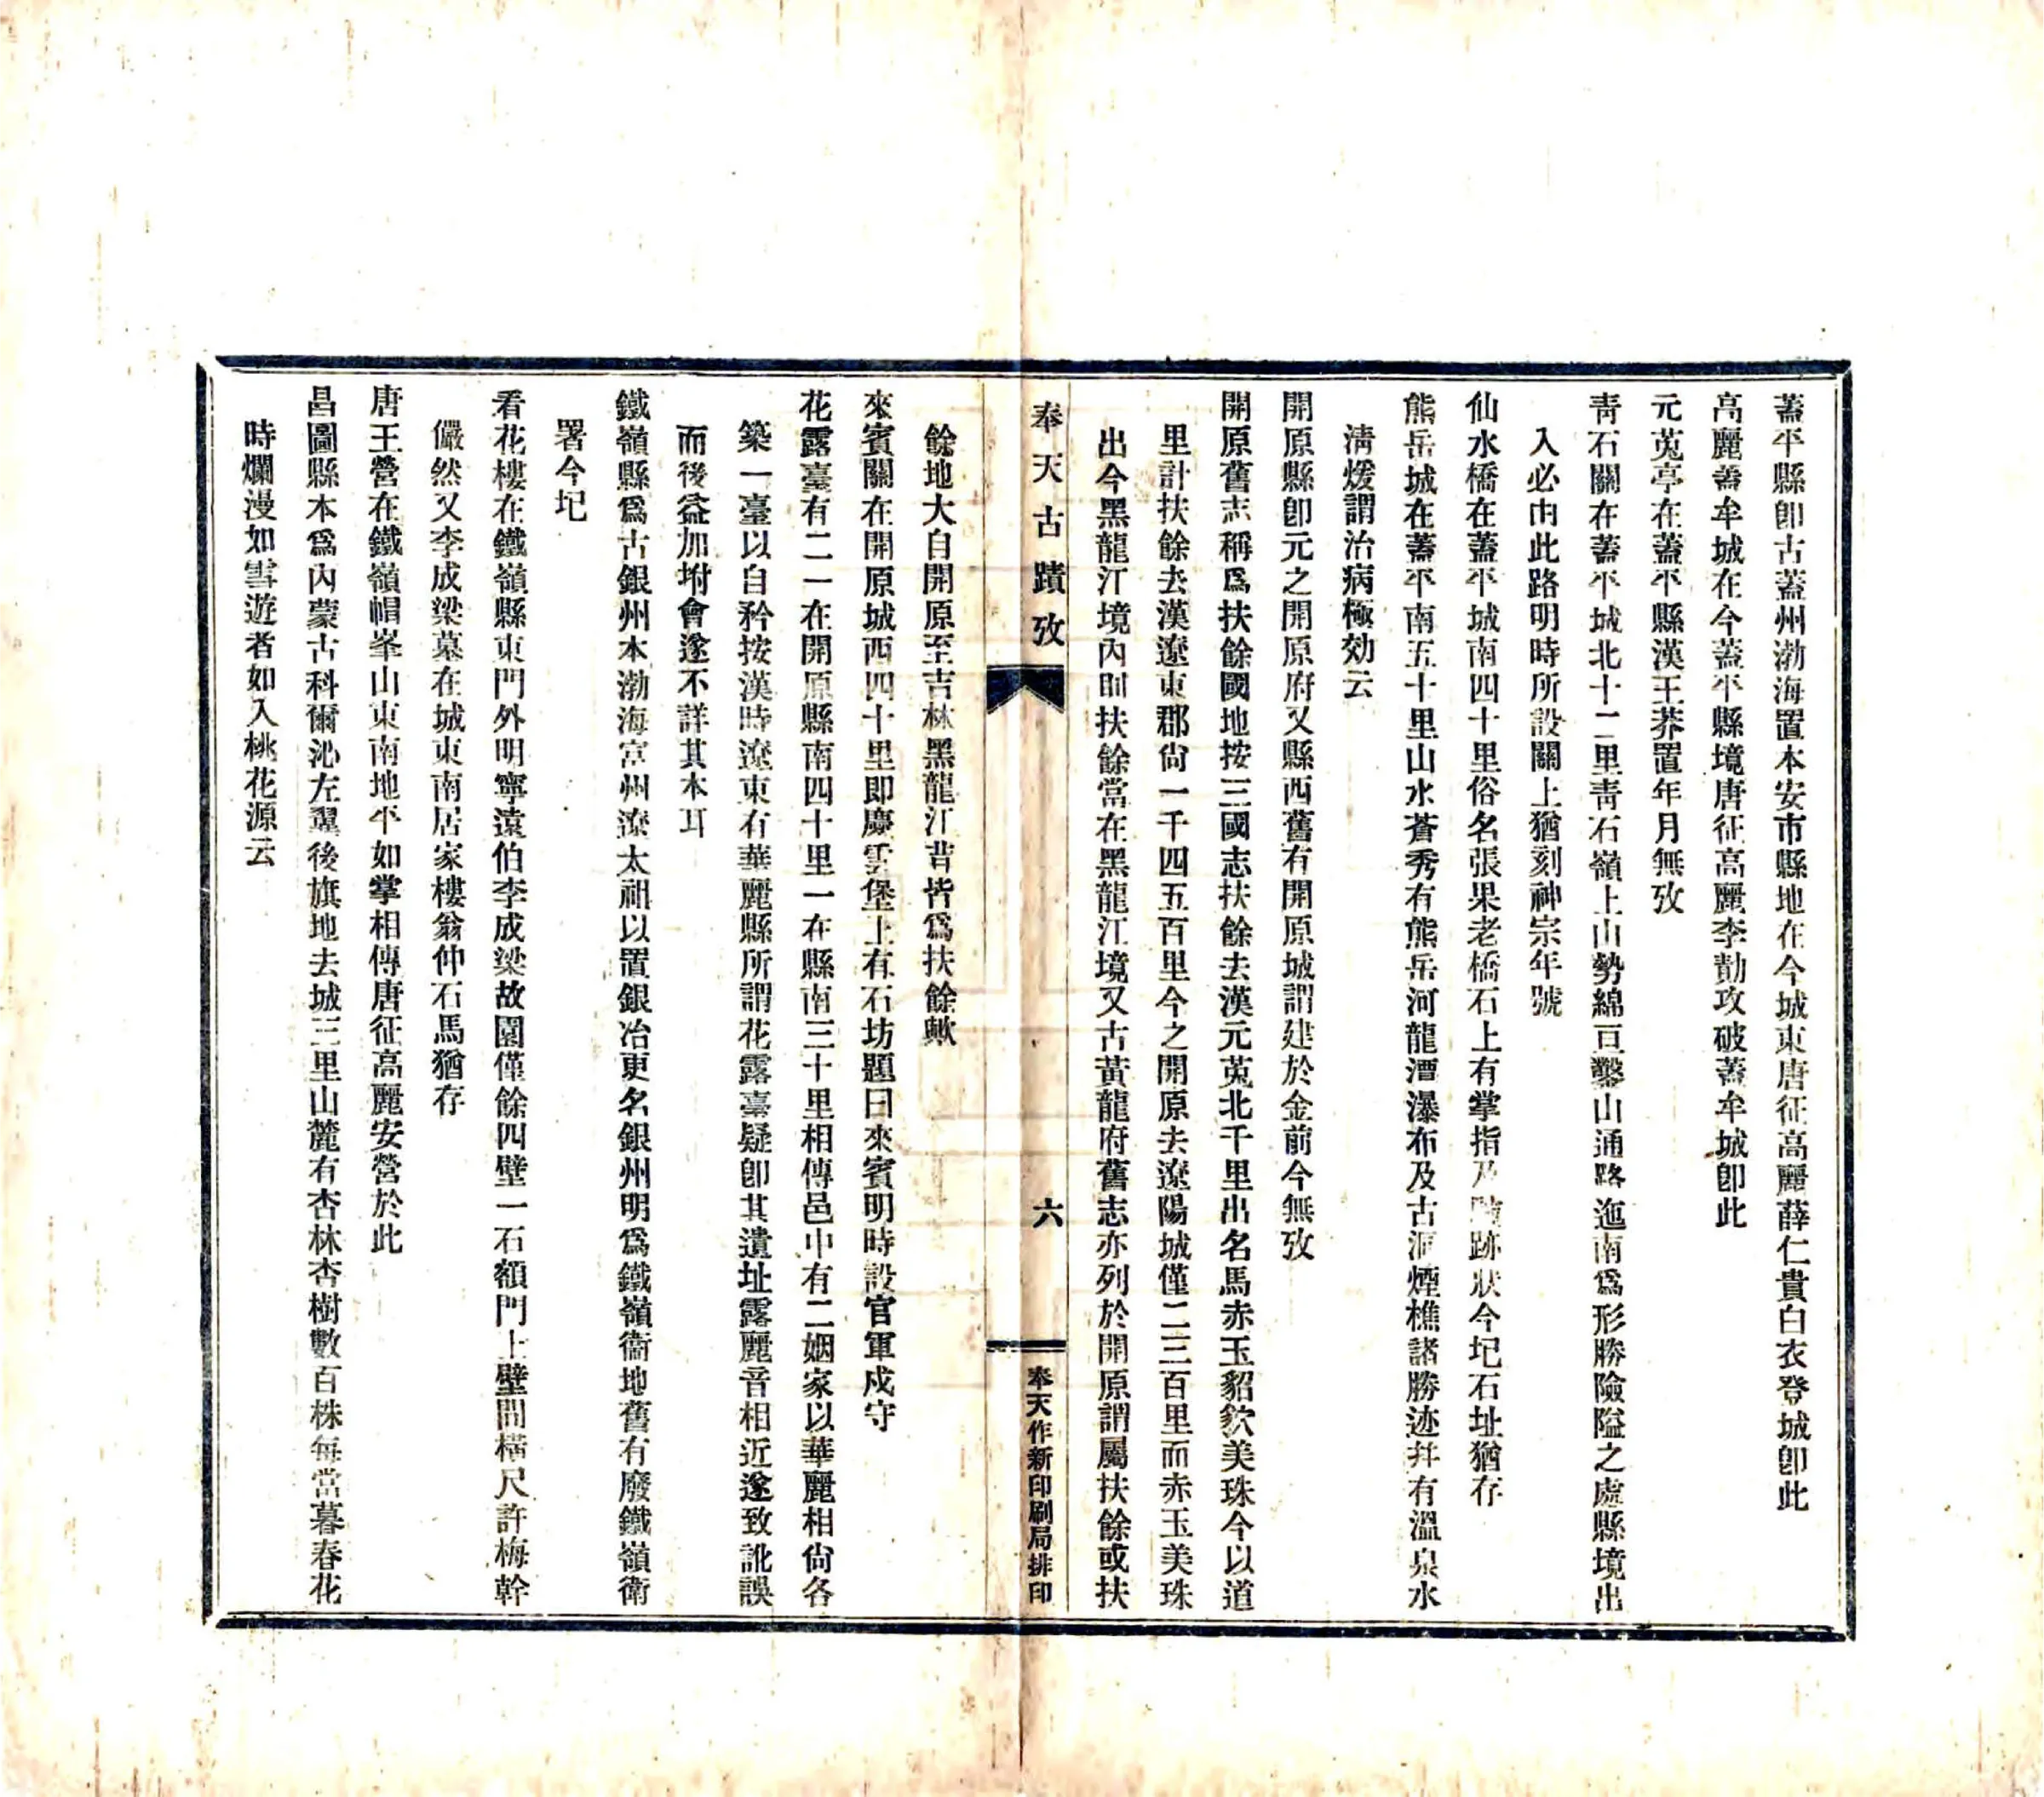 蓋平縣卽古蓋州渤海置本安市縣地在今城東唐征高麗薛仁貴白衣登城卽此
高麗蓋牟城在今蓋平縣境唐征高麗李勣攻破蓋牟城卽此
元菟亭在蓋平縣漢王莽置年月無攷
靑石關在蓋平城北十二里靑石嶺上山勢綿亘鑿山通路迤南爲形勝險隘之處縣境出
入必由此路明時所設關上猶刻神宗年號
仙水橋在蓋平城南四十里俗名張果老橋石上有掌指及跡狀今圮石址猶存
熊岳城在蓋平南五十里山水蒼秀有熊岳河龍潭瀑布及古洞煙樵諸勝迹幷有溫泉水
淸煖謂治病極効云
開原縣卽元之開原府又縣西舊有開原城謂建於金前今無攷
開原舊志稱爲扶餘國地按三國志扶餘去漢元菟北千里出名馬赤玉貂貁美珠今以道
里計扶餘去漢遼東郡尙一千四五百里今之開原去遼陽城僅二三百里而赤玉美珠
出今黑龍江境內則扶餘當在黑龍江境又古黃龍府舊志亦列於開原謂屬扶餘或扶
奉天古蹟攷
六
奉天作新印刷局排印
餘地大自開原至吉林黑龍江昔皆爲扶餘歟
來賓關在開原城西四十里即慶雲堡上有石坊題曰來賓明時設官軍戍守
花露臺有二一在開原縣南四十里一在縣南三十里相傳邑中有二姻家以華麗相尙各
築一臺以自矜按漢時遼東有華麗縣所謂花露臺疑卽其遺址露麗音相近遂致訛誤
而後益加坿會遂不詳其本耳
鐵嶺縣爲古銀州本渤海富州遼太祖以置銀冶更名銀州明爲鐵嶺衞地舊有廢鐵嶺衛
署今圮
看花樓在鐵嶺縣東門外明寧遠伯李成梁故園僅餘四壁一石額門上壁間橫尺許梅幹
儼然又李成梁墓在城東南居家樓翁仲石馬猶存
唐王營在鐵嶺帽峯山東南地平如掌相傳唐征高麗安營於此
昌圖縣本爲內蒙古科爾沁左翼後旗地去城三里山麓有杏林杏樹數百株每當暮春花
時爛漫如雪遊者如入桃花源云